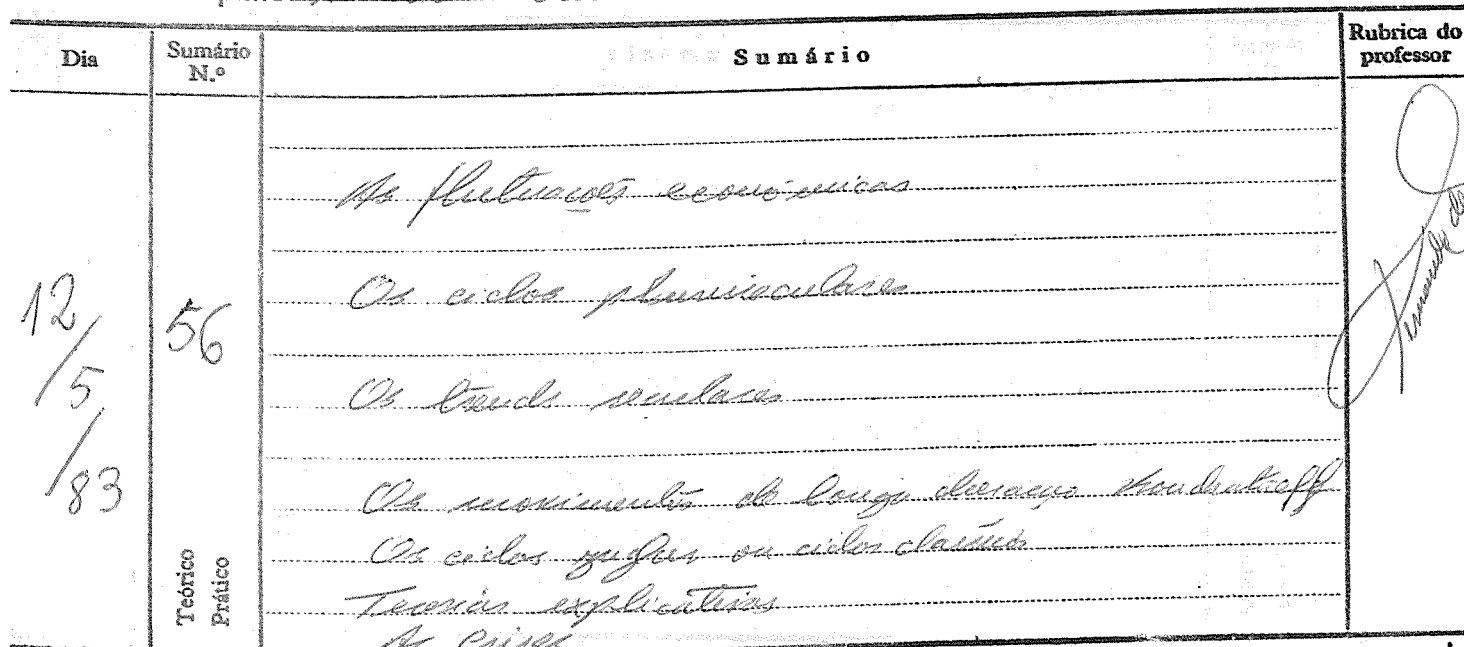 Dia
Sumário N.º
Sumário
Rubrica do professor
12/5/83
56
Teórico
Prático
As flutuações económicas
Os ciclos pluriseculares
Os trends seculares
Os movimentos de longa duração Kondratieff
Os ciclos ou ciclos
Teorias explicativas
As crises